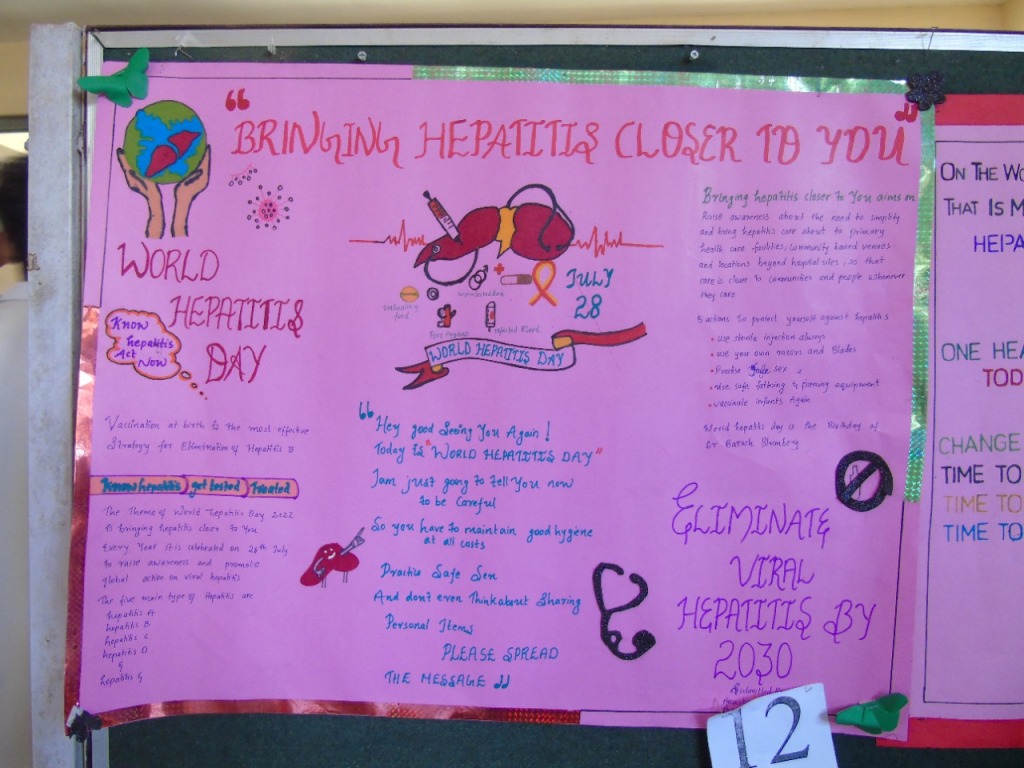 "BRINGING HEPATITIS CLOSER TO YOU"
WORLD
HEPATITIS
DAY
Know
hepatitis
Act
Now
Vaccination at birth is the most effective
Strategy for Elimination of Hepatitis B
Know hepatitis get tested Treated
The Theme of World Hepatitis Day 2022
is bringing hepatitis closer to You
Every Year it is celebrated on 28th July
to raise awareness and promote
global action on viral hepatitis
The five main type of Hepatitis are
hepatitis A
hepatitis B
hepatitis C
hepatitis D
&
hepatitis G
JULY
28
food
Infected Blood
WORLD HEPATITIS DAY
"Hey good Seeing You Again!
Today is "WORLD HEPATITIS DAY"
Iam just going to tell You now
to be Careful
So you have to maintain good hygiene
at all costs
Practise Safe Sex
And don't even Think about Sharing
Personal Items
PLEASE SPREAD
THE MESSAGE
Bringing hepatitis closer to You aims on
Raise awareness about the need to simplify
and bring hepatitis care about to primary
health care facilities, Community based venues
and locations beyond hospital sites, so that
care is closer to communities and people whenever
they care
5 actions to protect yourself against hepatitis
• use sterile injection always
• use you own razors and Blades
• Practise Safe sex
• use safe tattoing & piercing equipment
• vaccinate infants Again
World hepatitis day is the Birthday of
Dr. Baruch Blumberg
ELIMINATE
VIRAL
HEPATITIS BY
2030
Submitted
12
ON THE WO
THAT IS M
HEPA
ONE HEA
TOD
CHANGE
TIME TO
TIME TO
TIME TO